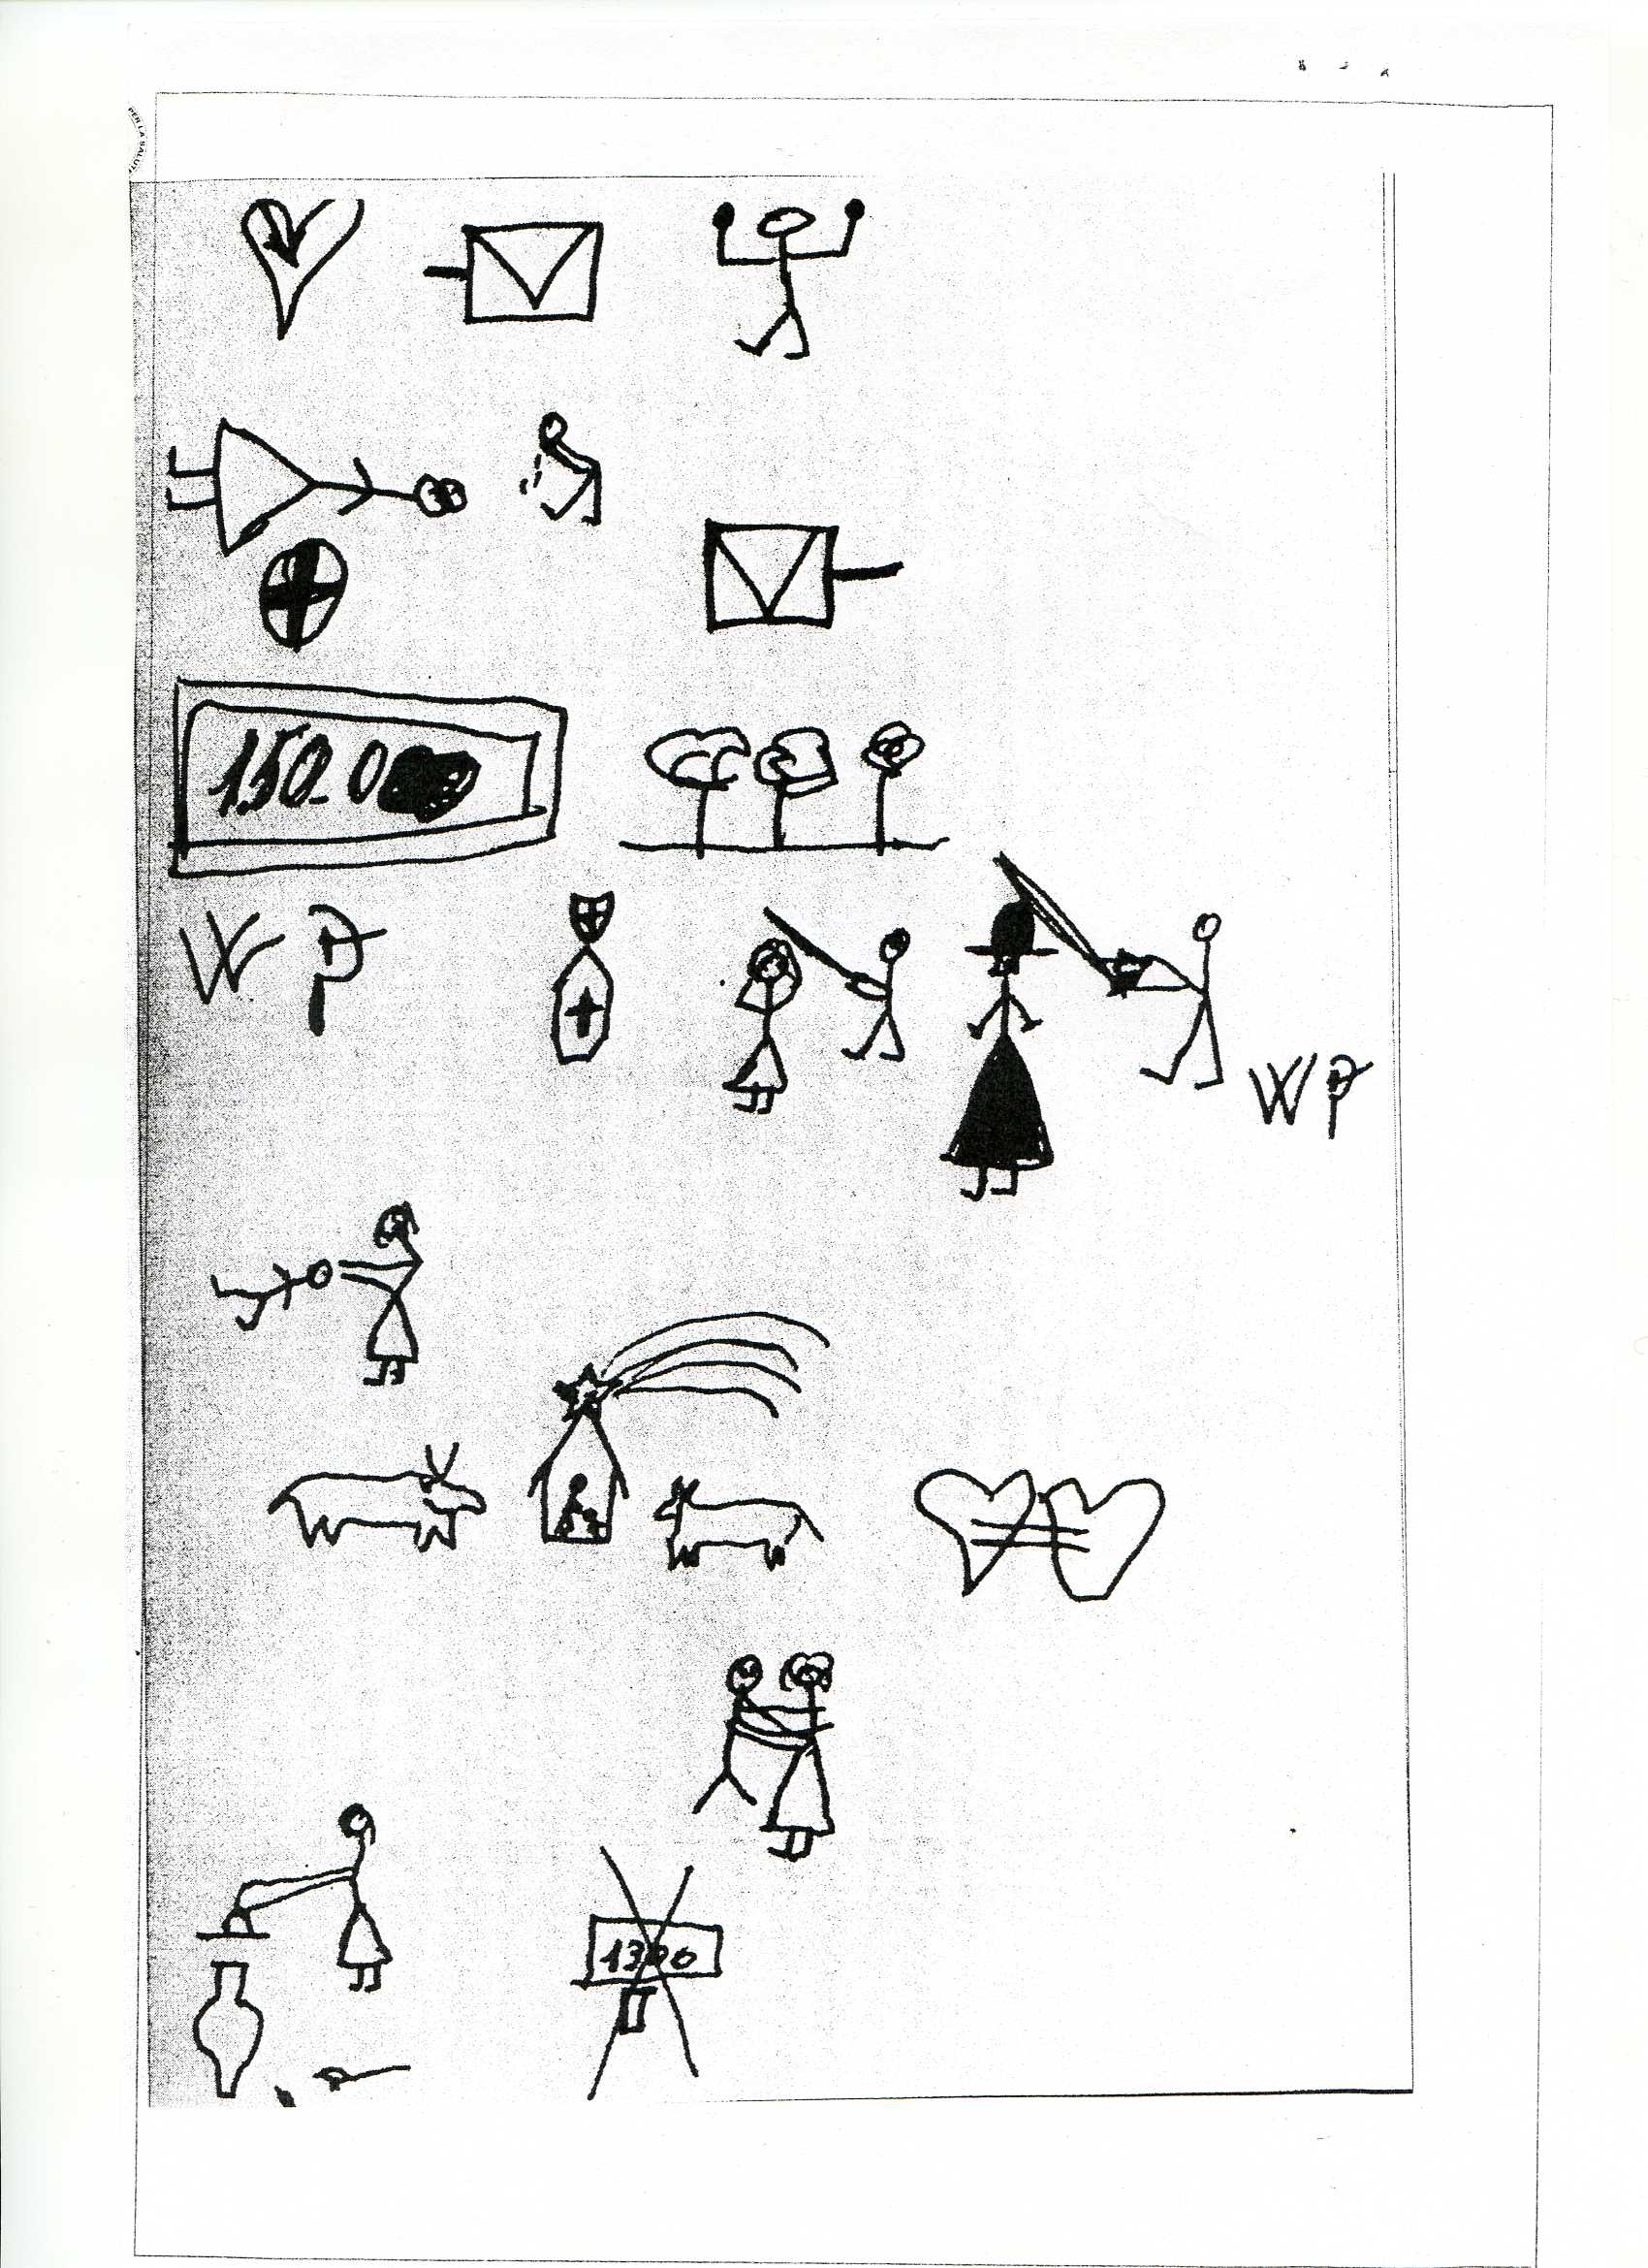 PER LA SALUT
150.0
W P
W P
1300